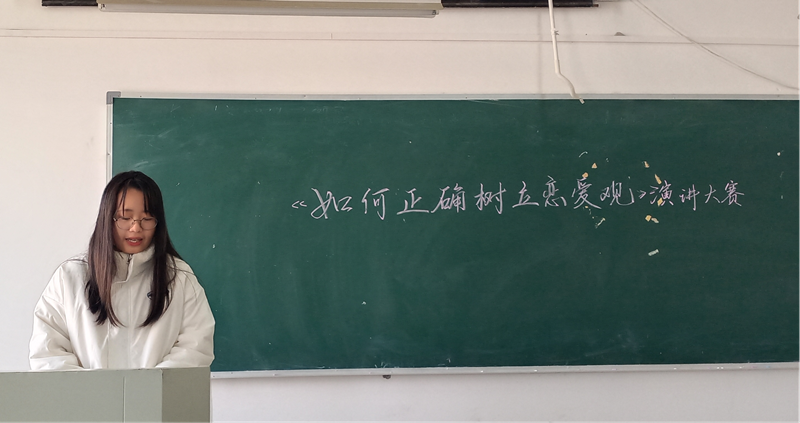 《如何正确树立恋爱观》演讲大赛